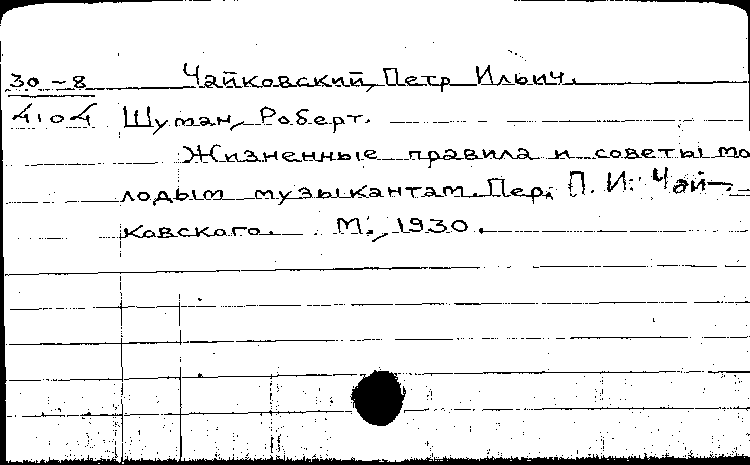 30-8 Чайковский, Петр Ильич.
4104 Шуман, Роберт.
Жизненные правила и советы мо
лодым музыкантам. Пер. П. И. Чай-
ковского. М., 1930.